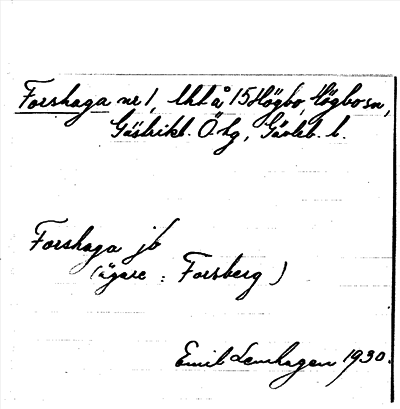 Forshaga nr 1, Uht å 15 Högbo, Högbo sn,
Gästrikl. Ö tg, Gävleb. l.
Forshaga jb
(ägare : Forsberg)
Emil Lenhagen 1930.